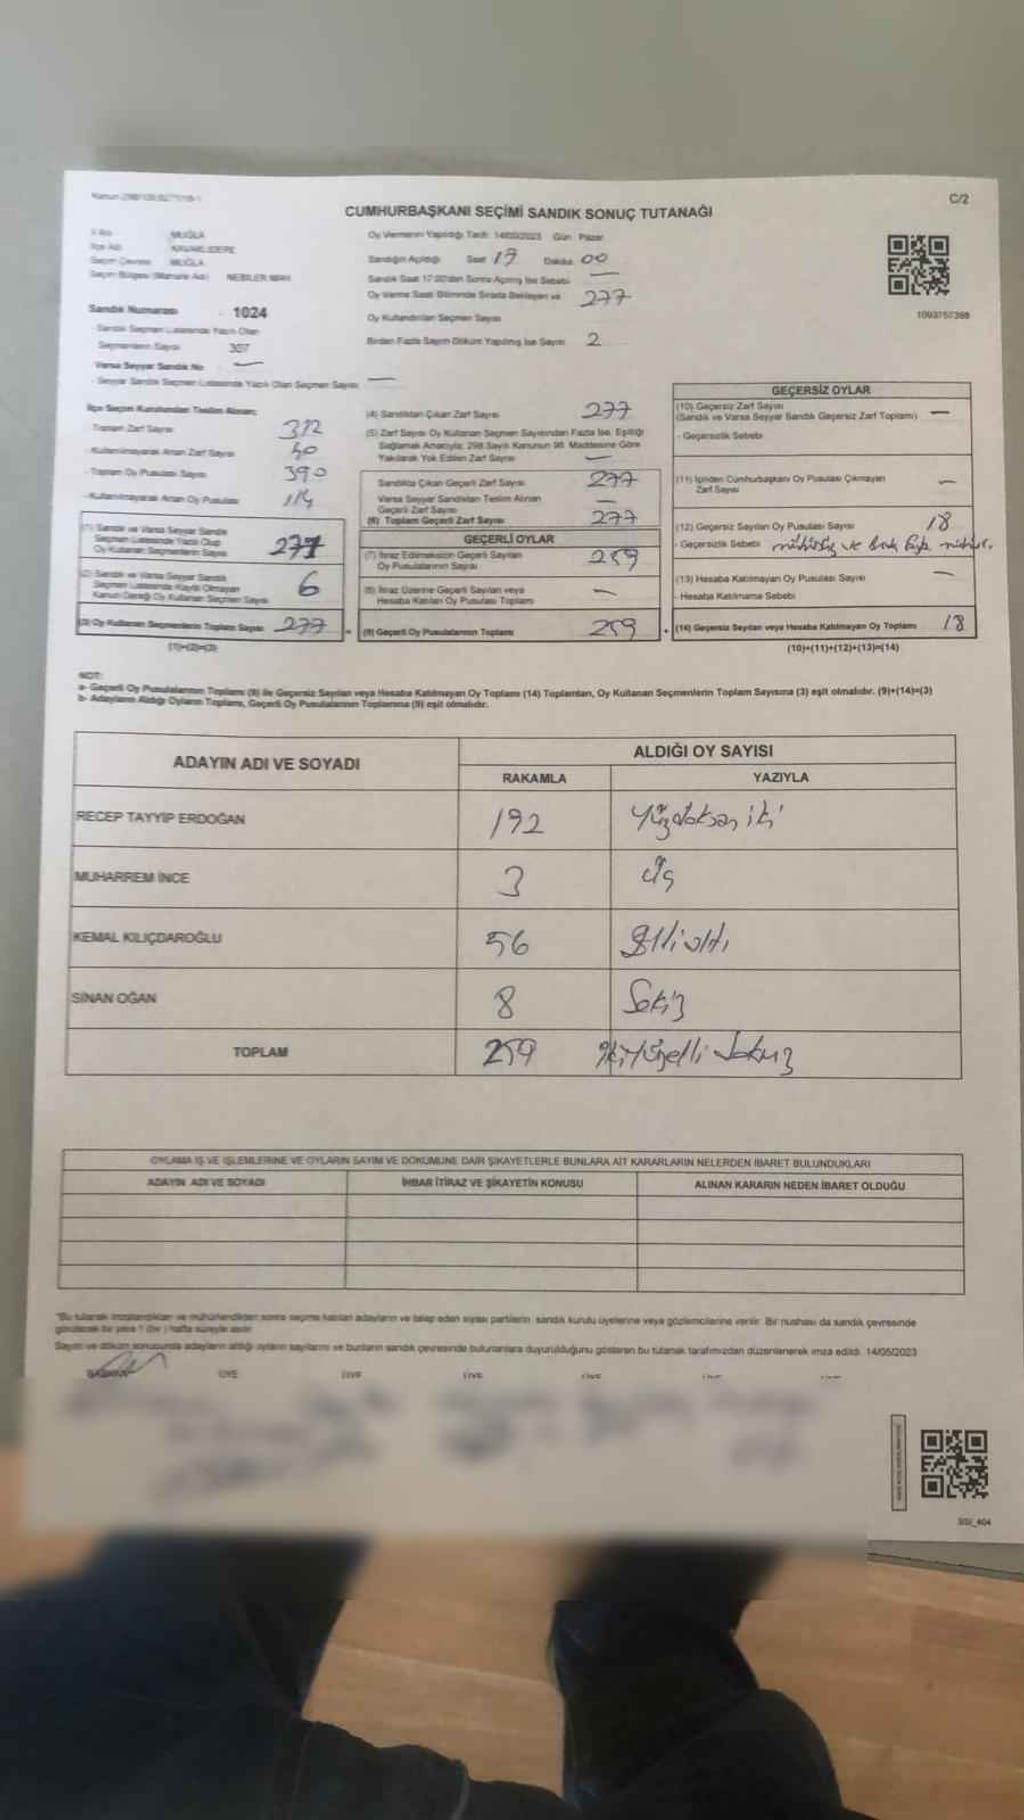 C/2
CUMHURBAŞKANI SEÇİMİ SANDIK SONUÇ TUTANAĞI
İli Adı MUĞLA
İlçe Adı KAVAKLIDERE
Seçim Çevresi MUĞLA
Seçim Bölgesi (Mahalle Adı) NEBİLER MAH
Oy Vermenin Yapıldığı Tarih 14/05/2023 Gün Pazar
Sandığın Açıldığı Saat 17 Dakika 00
Sandık Saat 17:00'dan Sonra Açılmış İse Sebebi —
Oy Verme Saati Bitiminde Sırada Bekleyen ve 277
Oy Kullandırılan Seçmen Sayısı
Birden Fazla Sayım Döküm Yapılmış İse Sayısı 2
1093757398
Sandık Numarası 1024
- Sandık Seçmen Listesinde Yazılı Olan
Seçmenlerin Sayısı 307
Varsa Seyyar Sandık No —
- Seyyar Sandık Seçmen Listesinde Yazılı Olan Seçmen Sayısı —
İlçe Seçim Kurulundan Teslim Alınan;
- Toplam Zarf Sayısı 312
- Kullanılmayarak Artan Zarf Sayısı 40
- Toplam Oy Pusulası Sayısı 390
- Kullanılmayarak Artan Oy Pusulası 114
(1) Sandık ve Varsa Seyyar Sandık
Seçmen Listesinde Yazılı Olup
Oy Kullanan Seçmenlerin Sayısı 277
(2) Sandık ve Varsa Seyyar Sandık
Seçmen Listesinde Kayıtlı Olmayan
Kanun Gereği Oy Kullanan Seçmen Sayısı 6
(3) Oy Kullanan Seçmenlerin Toplam Sayısı 277
(1)+(2)=(3)
(4) Sandıktan Çıkan Zarf Sayısı 277
(5) Zarf Sayısı Oy Kullanan Seçmen Sayısından Fazla İse, Eşitliği
Sağlamak Amacıyla; 298 Sayılı Kanunun 98. Maddesine Göre
Yakılarak Yok Edilen Zarf Sayısı —
Sandıkta Çıkan Geçerli Zarf Sayısı 277
Varsa Seyyar Sandıktan Teslim Alınan
Geçerli Zarf Sayısı —
(6) Toplam Geçerli Zarf Sayısı 277
GEÇERLİ OYLAR
(7) İtiraz Edilmeksizin Geçerli Sayılan
Oy Pusulalarının Sayısı 259
(8) İtiraz Üzerine Geçerli Sayılan veya
Hesaba Katılan Oy Pusulası Toplamı —
(9) Geçerli Oy Pusulalarının Toplamı 259
GEÇERSİZ OYLAR
(10) Geçersiz Zarf Sayısı
(Sandık ve Varsa Seyyar Sandık Geçersiz Zarf Toplamı) —
- Geçersizlik Sebebi
(11) İçinden Cumhurbaşkanı Oy Pusulası Çıkmayan
Zarf Sayısı —
(12) Geçersiz Sayılan Oy Pusulası Sayısı 18
- Geçersizlik Sebebi mühürsüz ve
(13) Hesaba Katılmayan Oy Pusulası Sayısı —
- Hesaba Katılmama Sebebi
(14) Geçersiz Sayılan veya Hesaba Katılmayan Oy Toplamı 18
(10)+(11)+(12)+(13)=(14)
NOT:
a- Geçerli Oy Pusulalarının Toplamı (9) ile Geçersiz Sayılan veya Hesaba Katılmayan Oy Toplamı (14) Toplamları, Oy Kullanan Seçmenlerin Toplam Sayısına (3) eşit olmalıdır. (9)+(14)=(3)
b- Adayların Aldığı Oyların Toplamı, Geçerli Oy Pusulalarının Toplamına (9) eşit olmalıdır.
ADAYIN ADI VE SOYADI
ALDIĞI OY SAYISI
RAKAMLA YAZIYLA
RECEP TAYYİP ERDOĞAN 192 Yüzdoksan iki
MUHARREM İNCE 3 üç
KEMAL KILIÇDAROĞLU 56 Elli altı
SİNAN OĞAN 8 Sekiz
TOPLAM 259 ikiyüzelli dokuz
OYLAMA İŞ VE İŞLEMLERİNE VE OYLARIN SAYIM VE DÖKÜMÜNE DAİR ŞİKAYETLERLE BUNLARA AİT KARARLARIN NELERDEN İBARET BULUNDUKLARI
ADAYIN ADI VE SOYADI İHBAR İTİRAZ VE ŞİKAYETİN KONUSU ALINAN KARARIN NEDEN İBARET OLDUĞU
"Bu tutanak imzalandıktan ve mühürlendikten sonra seçime katılan adayların ve talep eden siyasi partilerin sandık kurulu üyelerine veya gözlemcilerine verilir. Bir nushası da sandık çevresinde
görülecek bir yere 1 (bir) hafta süreyle asılır
Sayım ve döküm sonucunda adayların aldığı oyların sayılarını ve bunların sandık çevresinde bulunanlara duyurulduğunu gösteren bu tutanak tarafımızdan düzenlenerek imza edildi. 14/05/2023
BAŞKAN ÜYE ÜYE ÜYE ÜYE
SSI_404